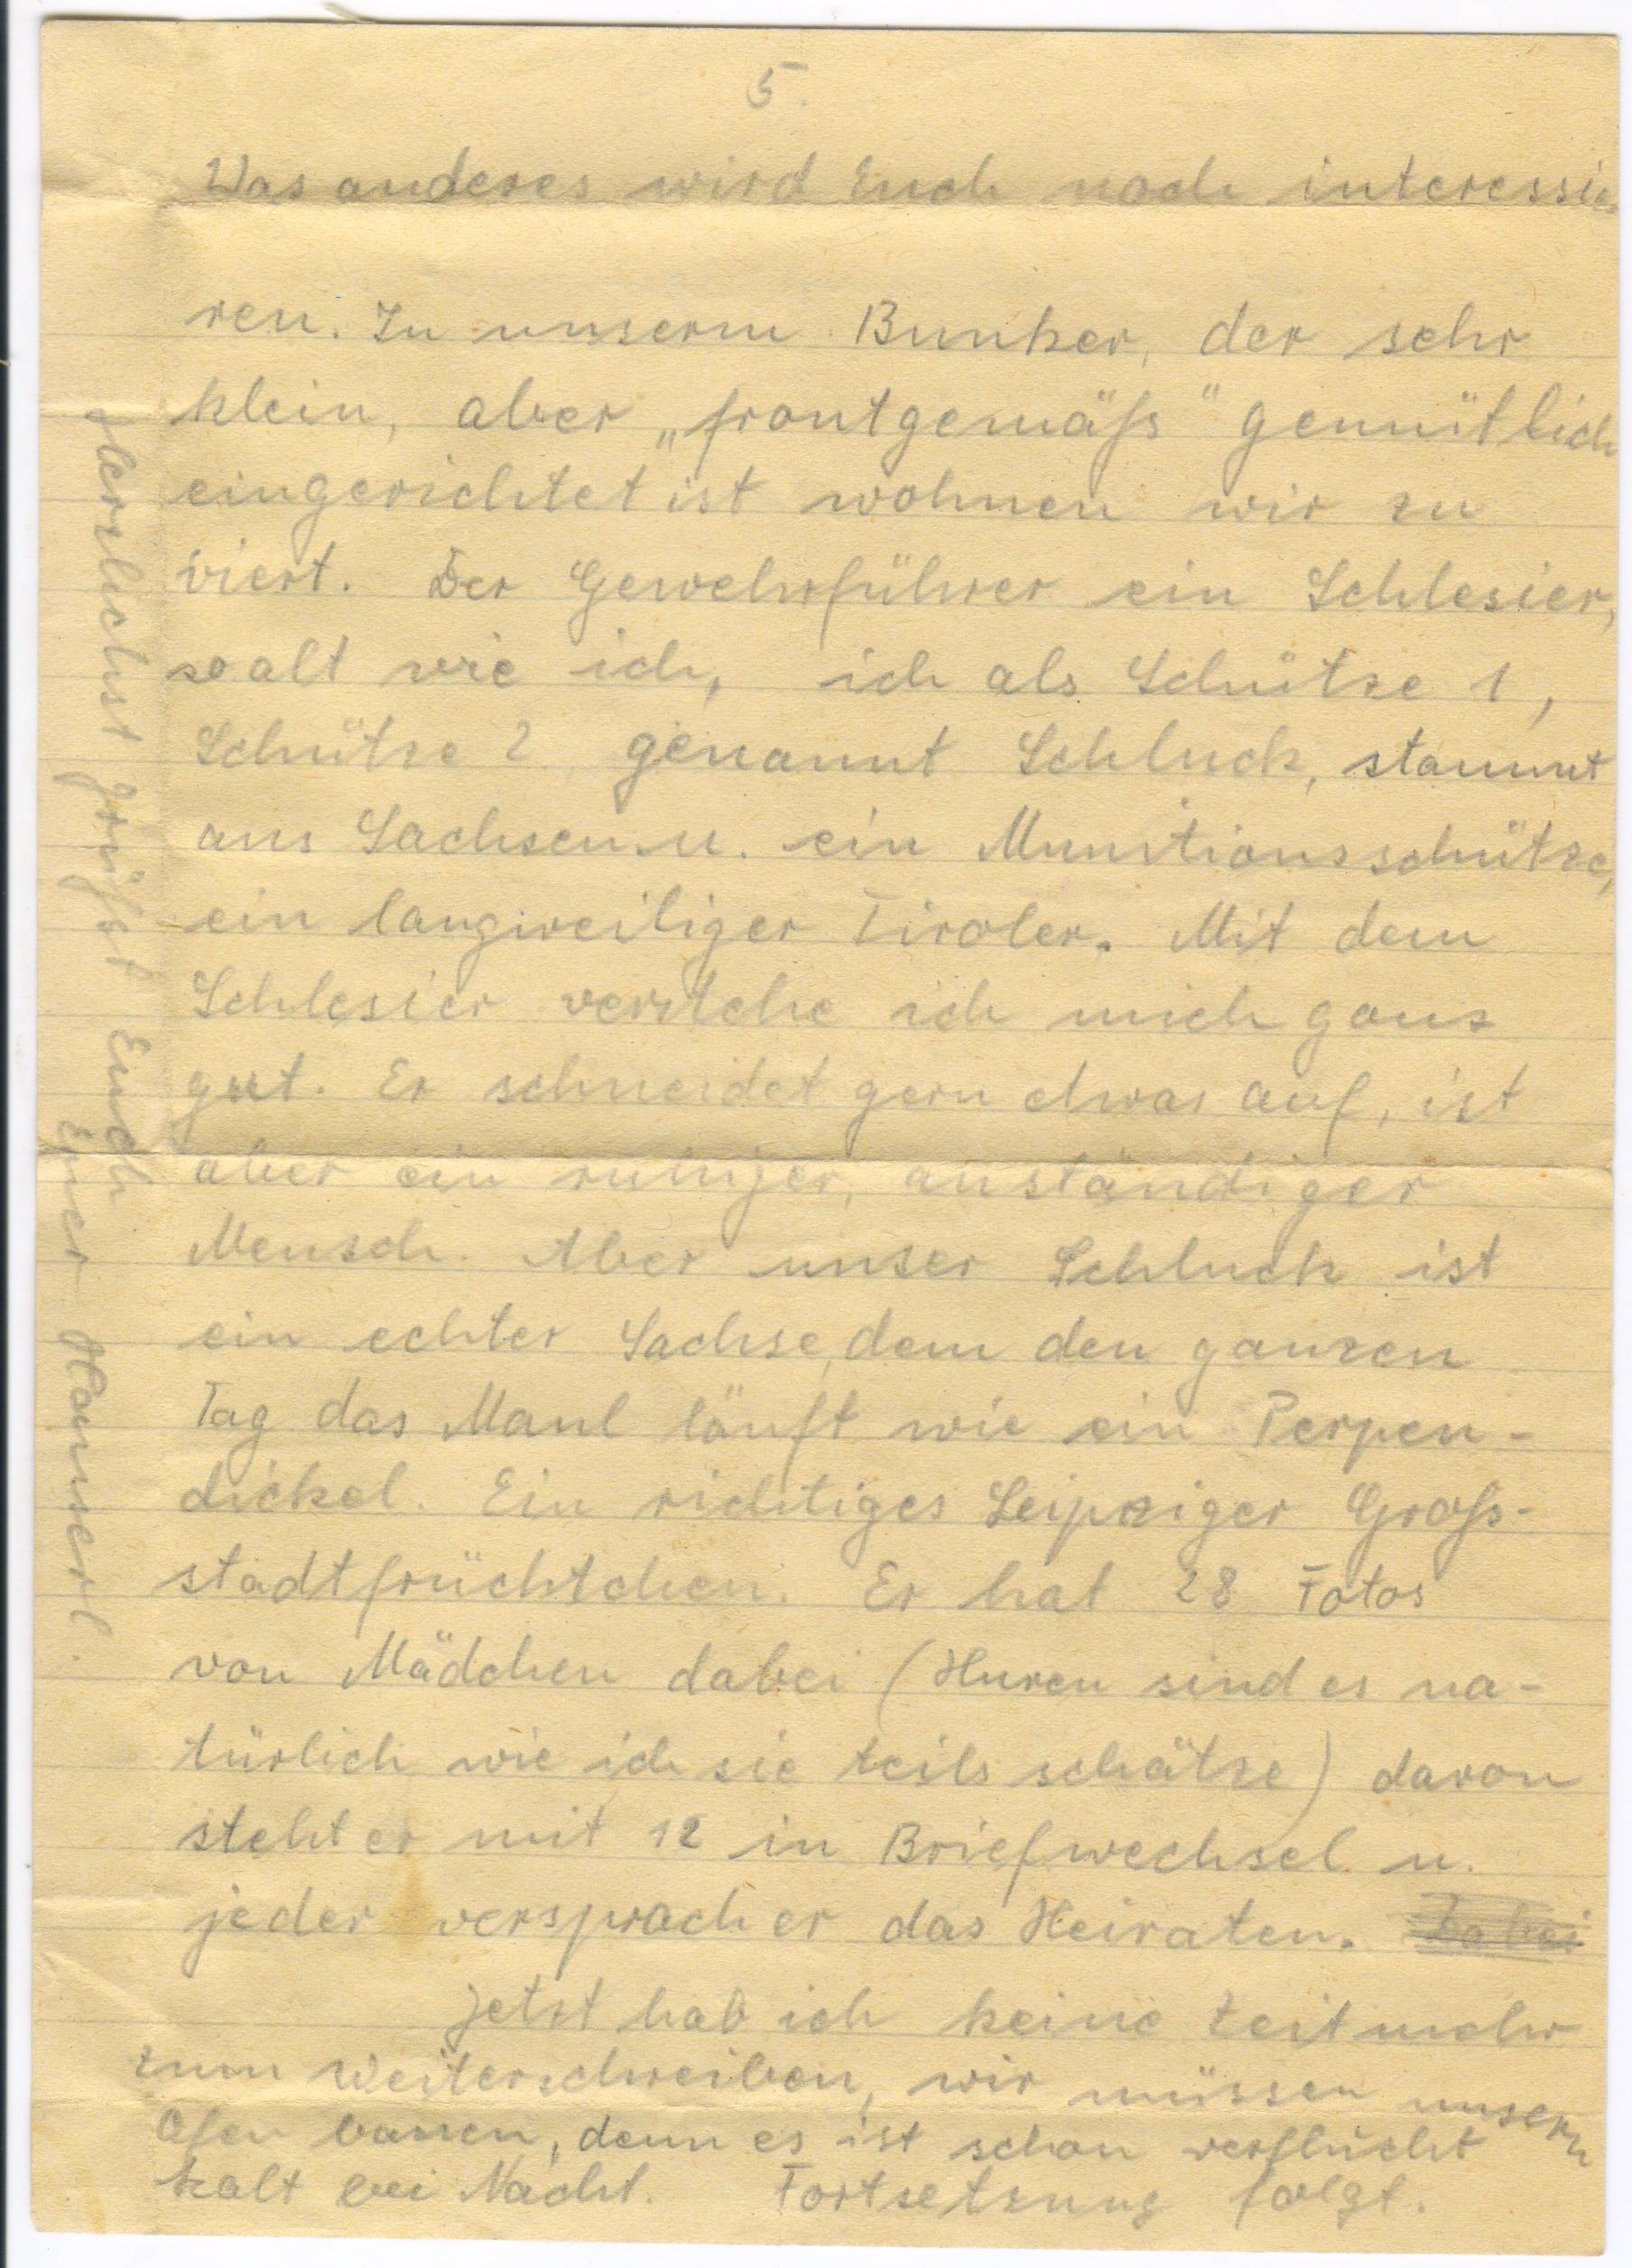 5.
Was anderes wird Euch noch interessie
ren. In unserm Bunker, der sehr
klein, aber „frontgemäß" gemütlich
eingerichtet ist wohnen wir zu
viert. Der Gewehrführer ein Schlesier,
so alt wie ich, ich als Schütze 1,
Schütze 2, genannt Schluck, stammt
aus Sachsen u. ein Munitionsschütze,
ein langweiliger Tiroler. Mit dem
Schlesier verstehe ich mich ganz
gut. Er schneidet gern etwas auf, ist
aber ein ruhiger, anständiger
Mensch. Aber unser Schluck ist
ein echter Sachse, dem den ganzen
Tag das Maul läuft wie ein Perpen-
dickel. Ein richtiges Leipziger Groß-
stadtfrüchtchen. Er hat 28 Fotos
von Mädchen dabei (Huren sind es na-
türlich wie ich sie teils schätze) davon
steht er mit 12 in Briefwechsel u.
jeder versprach er das Heiraten. Dabei
Jetzt hab ich keine Zeit mehr
zum Weiterschreiben, wir müssen unsern
Ofen bauen, denn es ist schon verflucht
kalt bei Nacht. Fortsetzung folgt.
Herzlichst grüßt Euch
Euer Hanserl.